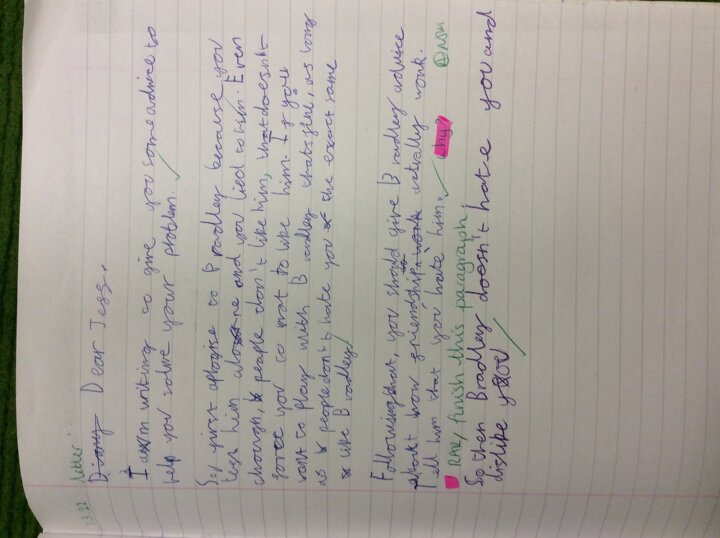 letter
Dear Jess,
I am writing to give you some advice to
help you solve your problem.
So, first apologise to Bradley because you
left him alone and you lied to him. Even
though, people don't like him, that doesn't
force you to not to like him. If you
want to play with Bradley thats fine, as long
as people don't hate you the exact same
like Bradley.
Following that, you should give Bradley advice
about how friendships actually work.
Tell him that you hate him. why?
finish this paragraph
So then Bradley doesn't hate you and
dislike you